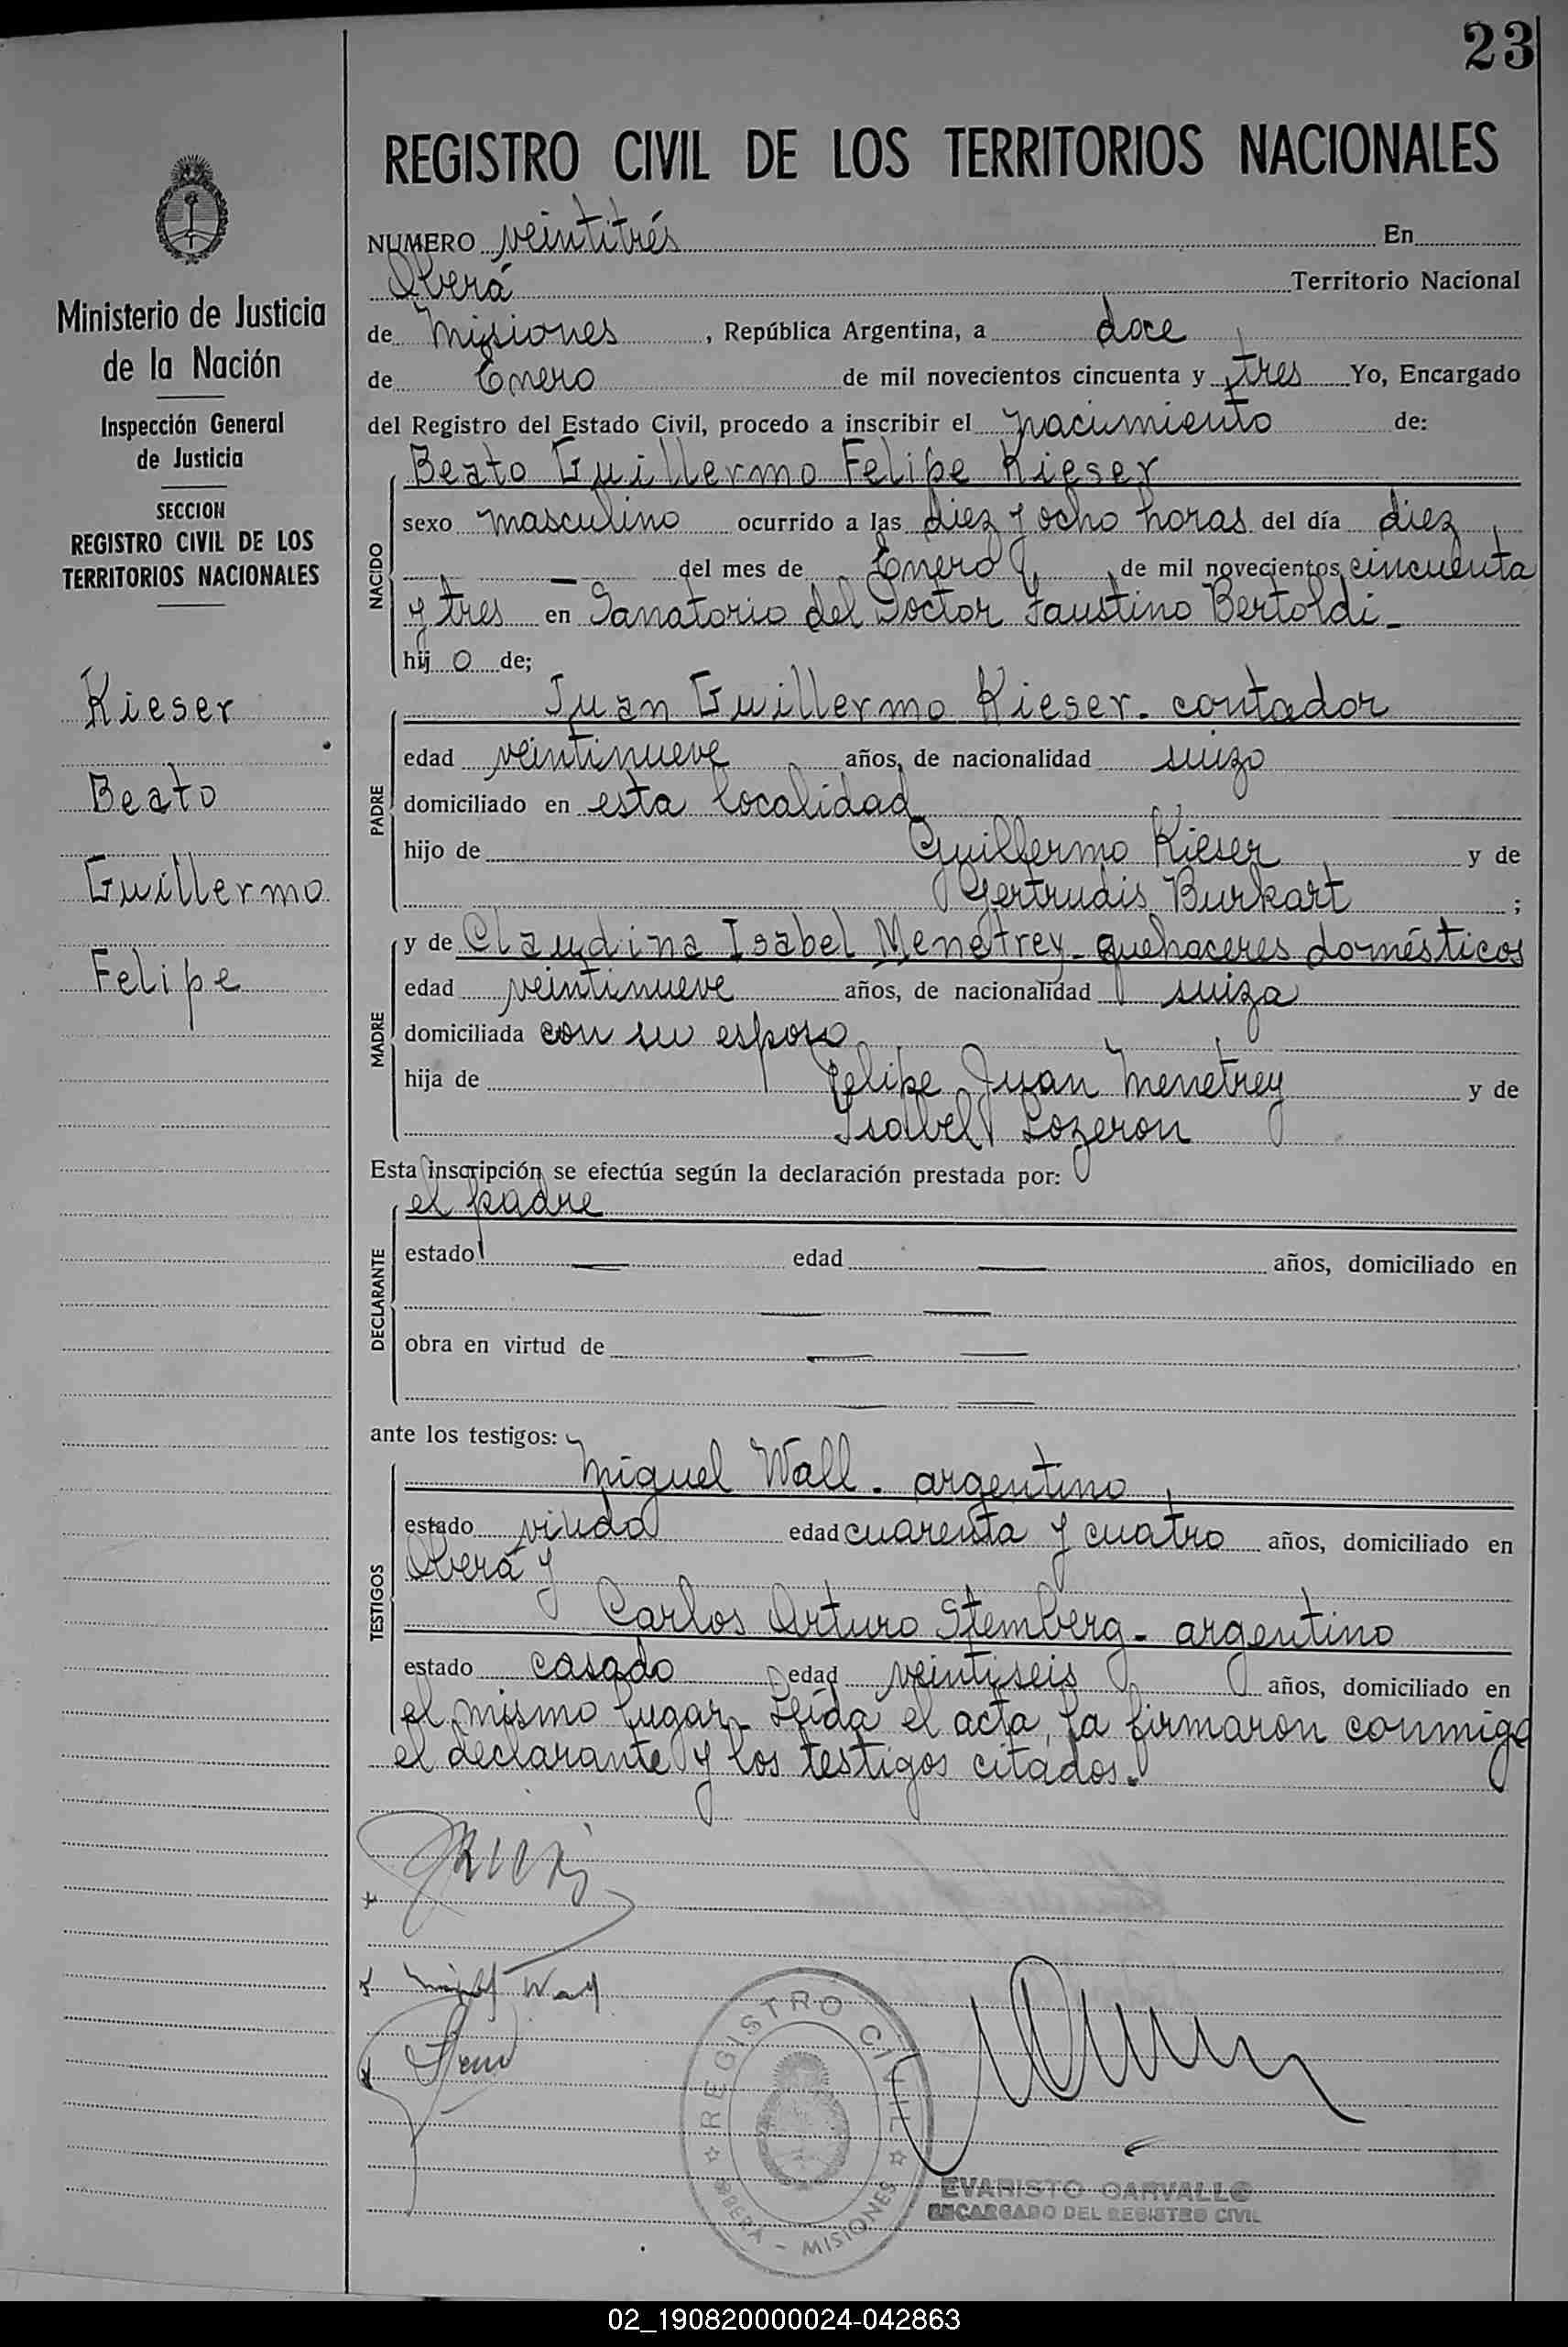 23
REGISTRO CIVIL DE LOS TERRITORIOS NACIONALES
Ministerio de Justicia
de la Nación
Inspección General
de Justicia
SECCION
REGISTRO CIVIL DE LOS
TERRITORIOS NACIONALES
Kieser
Beato
Guillermo
Felipe
NUMERO veintitrés En
Oberá Territorio Nacional
de Misiones, República Argentina, a doce
de Enero de mil novecientos cincuenta y tres Yo, Encargado
del Registro del Estado Civil, procedo a inscribir el nacimiento de:
NACIDO
Beato Guillermo Felipe Kieser
sexo masculino ocurrido a las diez y ocho horas del día diez
— del mes de Enero de mil novecientos cincuenta
y tres en Sanatorio del Doctor Faustino Bertoldi-
hijo de;
PADRE
Juan Guillermo Kieser. contador
edad veintinueve años, de nacionalidad suizo
domiciliado en esta localidad
hijo de Guillermo Kieser y de
Gertrudis Burkart ;
MADRE
y de Claudina Isabel Menetrey- quehaceres domésticos
edad veintinueve años, de nacionalidad suiza
domiciliada con su esposo
hija de Felipe Juan Menetrey y de
Isabel Lozeron
Esta inscripción se efectúa según la declaración prestada por:
DECLARANTE
el padre
estado — edad — años, domiciliado en
— —
obra en virtud de — —
— —
ante los testigos:
TESTIGOS
Miguel Wall. argentino
estado viudo edad cuarenta y cuatro años, domiciliado en
Oberá y
Carlos Arturo Stemberg- argentino
estado casado edad veintiseis años, domiciliado en
el mismo lugar. Leída el acta, la firmaron conmigo
el declarante y los testigos citados.-
Wall
REGISTRO CIVIL
OBERA - MISIONES
EVARISTO CARVALLO
ENCARGADO DEL REGISTRO CIVIL
02_190820000024-042863